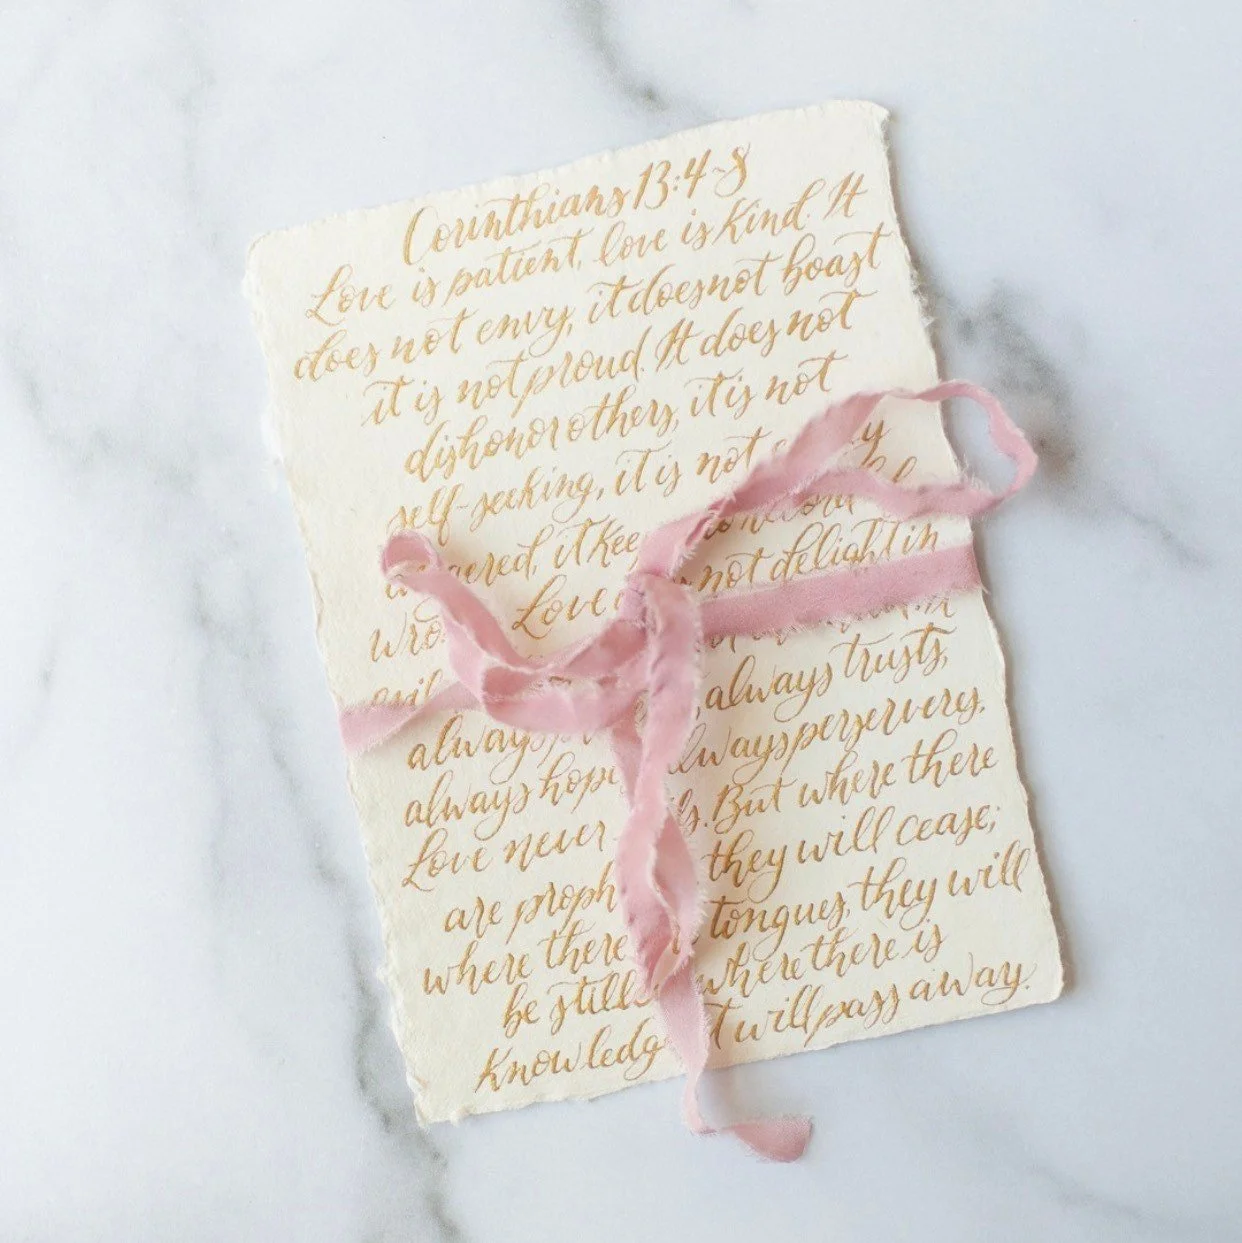 Corinthians 13:4-8
Love is patient, love is kind. It
does not envy, it does not boast
it is not proud. It does not
dishonor others, it is not
self-seeking, it is not
it no record
wro Love not delight in
evil
always always trusts,
always hope always perserveres.
Love never But where there
are proph they will cease;
where there tongues, they will
be stilled where there is
knowledge it will pass away.